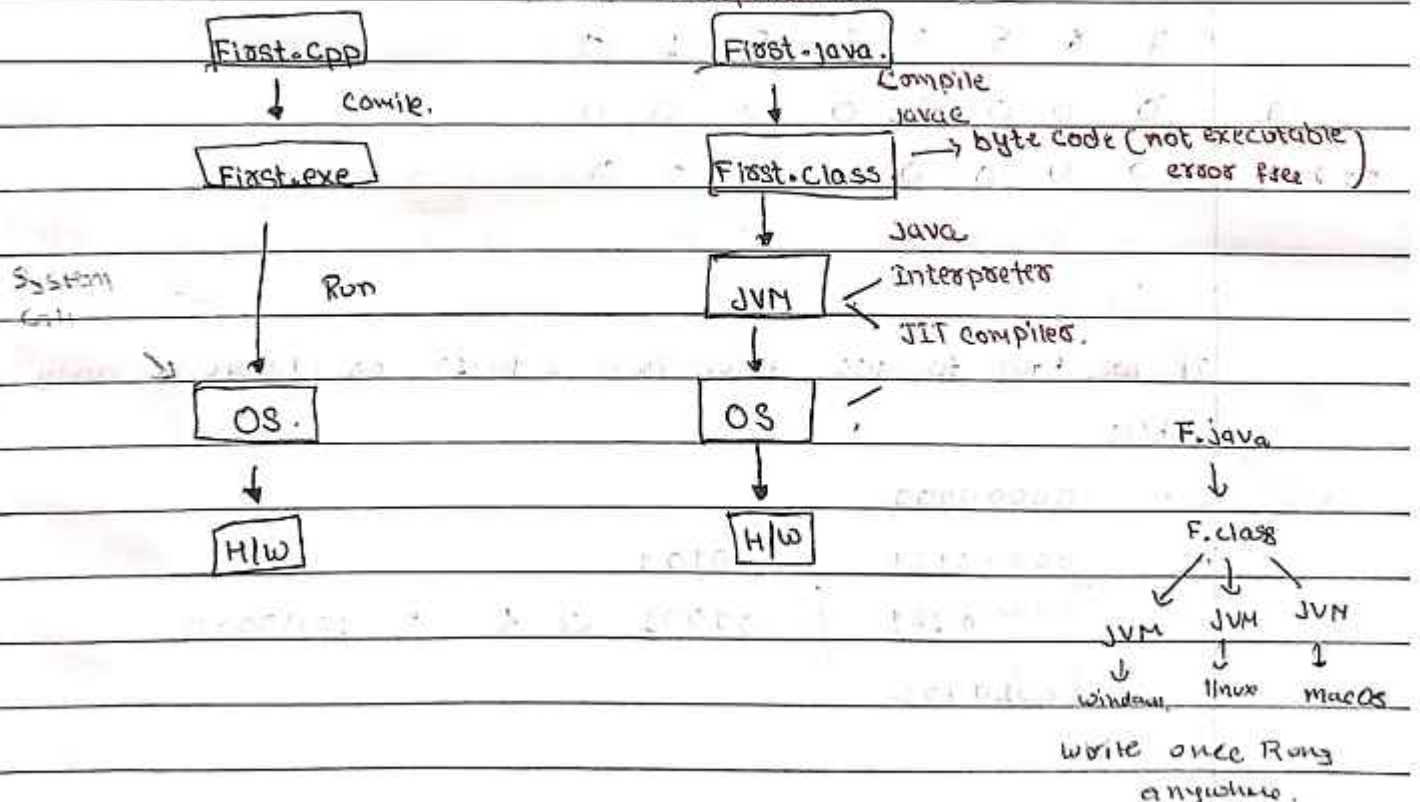 First.cpp
Comile.
First.exe
Run
System
OS.
H/W
First.java.
Compile
javac
First.class
byte code (not executable
error free)
Java
JVM
Interpreter
JIT compiler.
OS
H/W
F.java
F.class
JVM JVM JVM
windows linux macOS
write once Rung
anywhere.